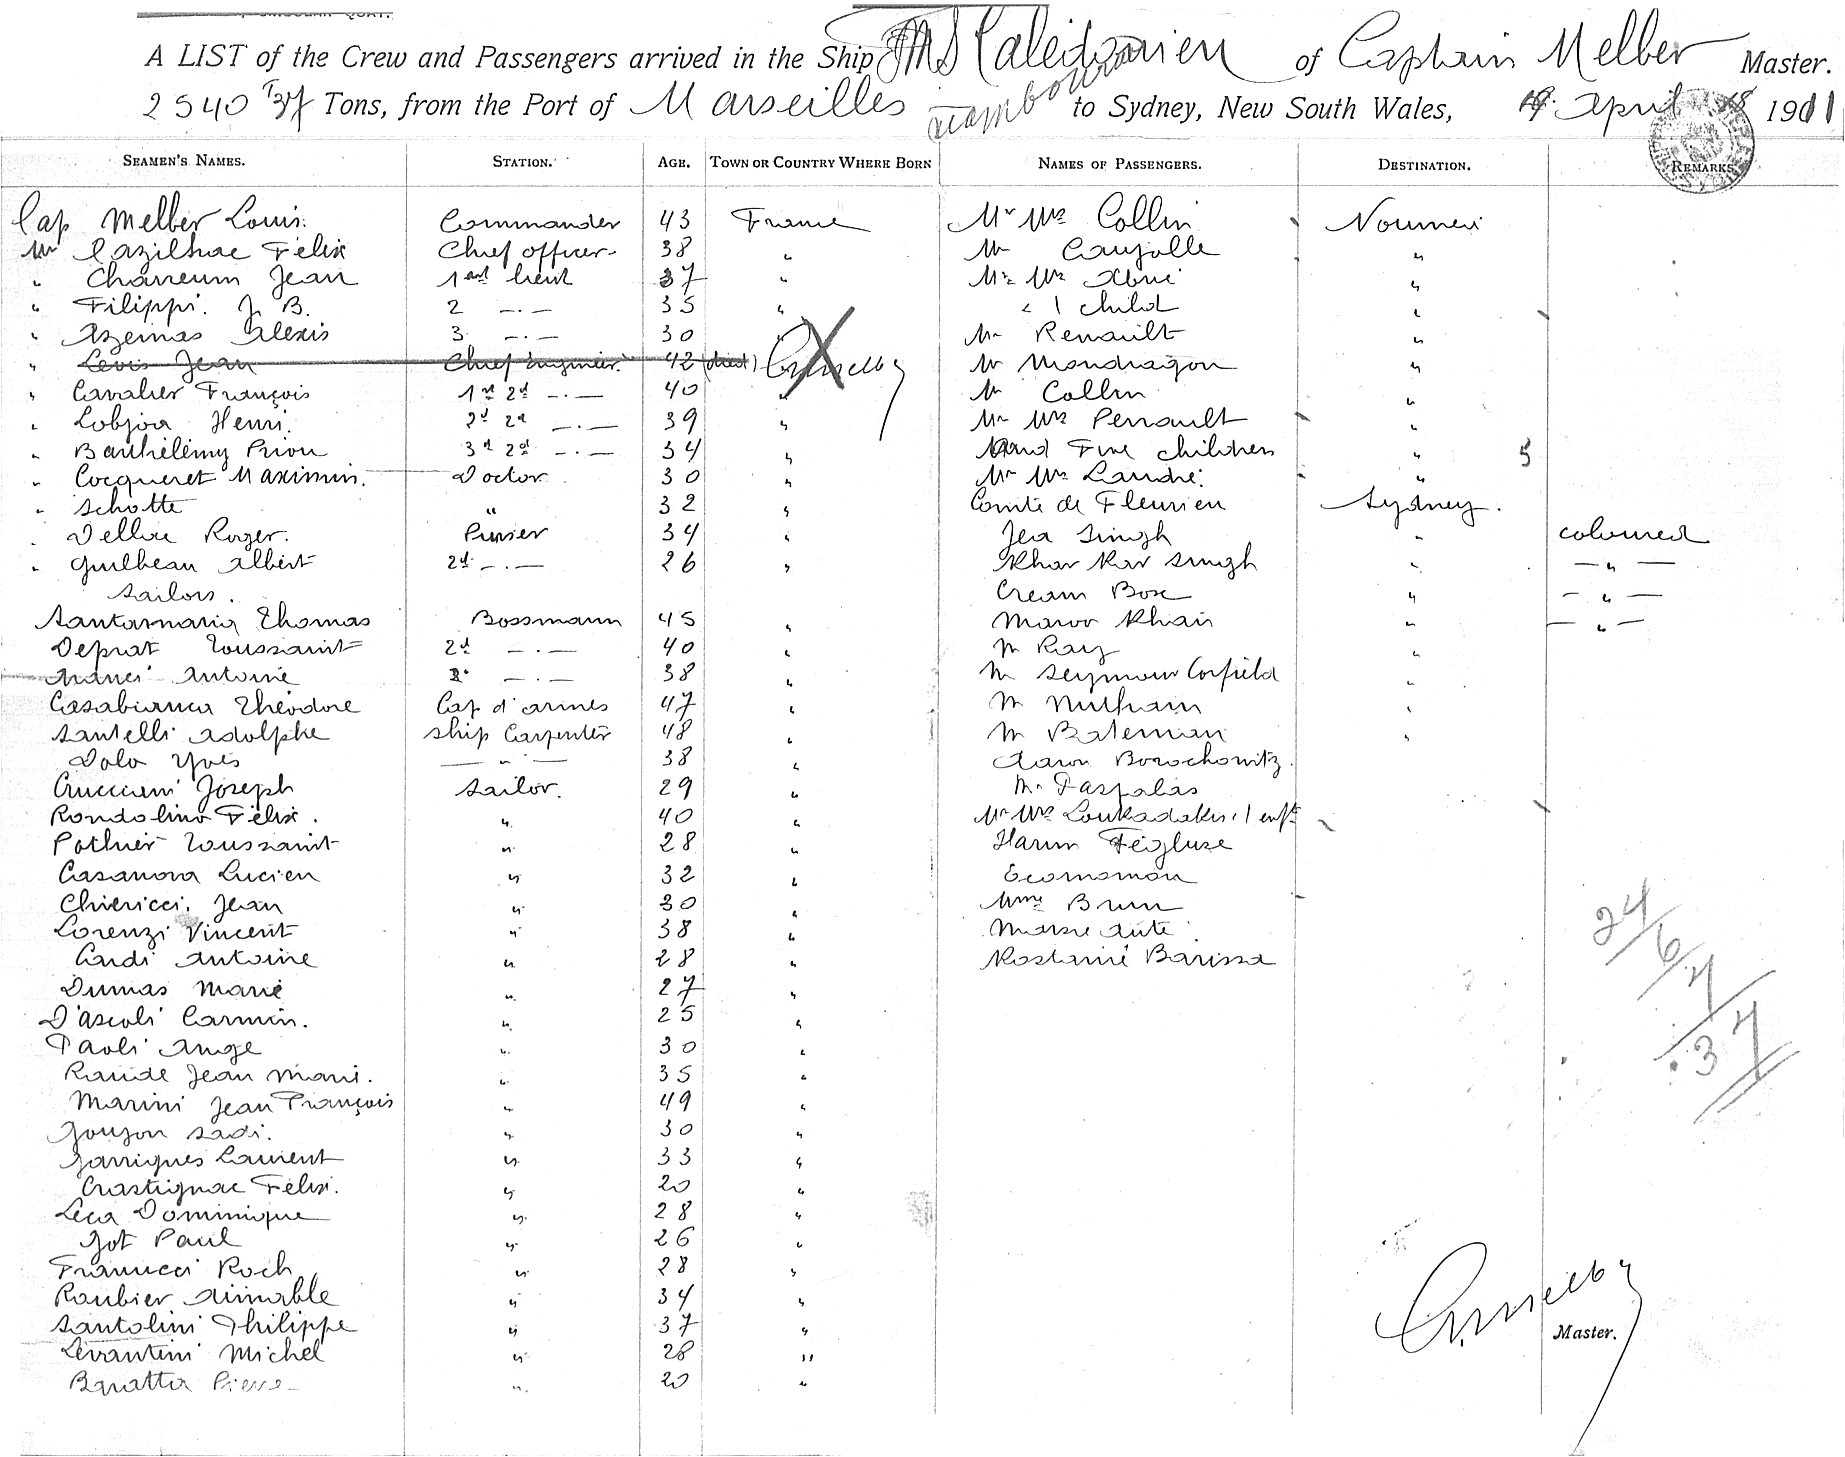 A LIST of the Crew and Passengers arrived in the Ship Caledonien of Captain Melber Master.
2540 Tons, from the Port of Marseilles to Sydney, New South Wales, April 1911
SEAMEN'S NAMES. STATION. AGE. TOWN OR COUNTRY WHERE BORN NAMES OF PASSENGERS. DESTINATION. REMARKS
Cap Melber Louis. Commander 43 France Mr Mrs Collin
Mr Cazilhac Félix Chief officer 38 " Mr Caujolle "
" Jean 1 lieut 37 " Mr Mrs "
" Filippi. J. B. 2 —.— 35 " " 1 child "
" Azeinas Alexis 3 —.— 30 " Mr Renault "
" Levis Jean Chief Engineer 42 (died) Mr Mondragon "
" Cavalier François 1st 2d —.— 40 " Mr Collin "
" Lobjoa Henri. 2d 2d —.— 39 " Mr Mrs Perrault "
" Barthélémy Priou 3d 2d —.— 34 " and Five children " 5
" Cocqueret Maximin. Doctor 30 " Mr Mrs Landre "
" Schotte " 32 " Comte de Fleurieu Sydney.
" Delluc Roger. Purser 34 " Jea Singh " coloured
" Guilbeau Albert 2d —.— 26 " Khar Kar Singh " — " —
Sailors. Cream Box " — " —
Santamaria Thomas Bossmann 45 " Maroo Khan " — " —
Deprat Toussaint 2d —.— 40 " M Ray "
Antoine —.— 38 " M Seymour Corfield "
Casabianca Théodore Cap d'armes 47 " M "
Santelli Adolphe Ship Carpenter 48 " M Bateman "
Dolo Yves — " — 38 " Aaron Borochowitz.
Crucciani Joseph Sailor. 29 " Mr Paspalas
Rondolino Félix. " 40 " Mr Mrs Loukadakis. 1 enft
Pothier Toussaint " 28 " Harun
Casanova Lucien " 32 " Economon
Chiericci. Jean " 30 " Mme Brun
Lorenzi Vincent " 38 "
Antoine " 28 " Barissa
Dumas Marie " 27 "
D'Ascoli Carmin. " 25 "
Paoli Ange " 30 "
Raude Jean Marie. " 35 "
Marini Jean François " 49 "
Goujon Sadi. " 30 "
Garrigues Laurent " 33 "
Crastignac Félix. " 20 "
Leca Dominique " 28 "
Got Paul " 26 "
Franucci Roch " 28 "
Roubier Aimable " 34 "
Santolini Philippe " 37 "
Levantini Michel " 28 "
Baratta Pierre " 20 "
24
6
7
37
Master.